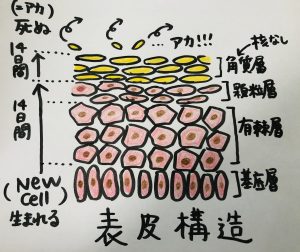 (=アカ)
死ぬ
アカ!!!
核なし
14日間
角質層
顆粒層
14日間
有棘層
(New cell)
生まれる
基底層
表皮構造